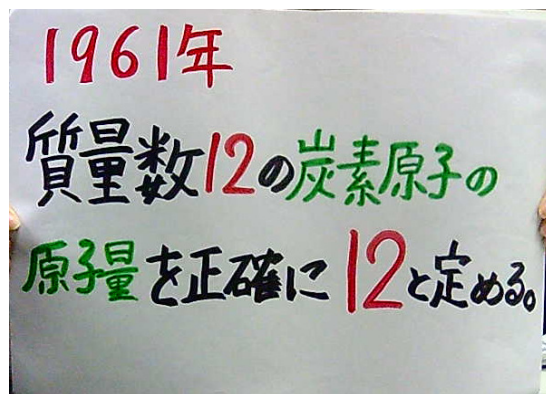 1961年
質量数12の炭素原子の
原子量を正確に12と定める。